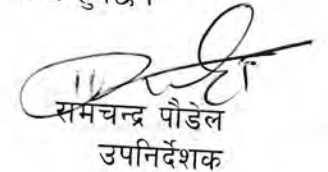 रामचन्द्र पौडेल
उपनिर्देशक